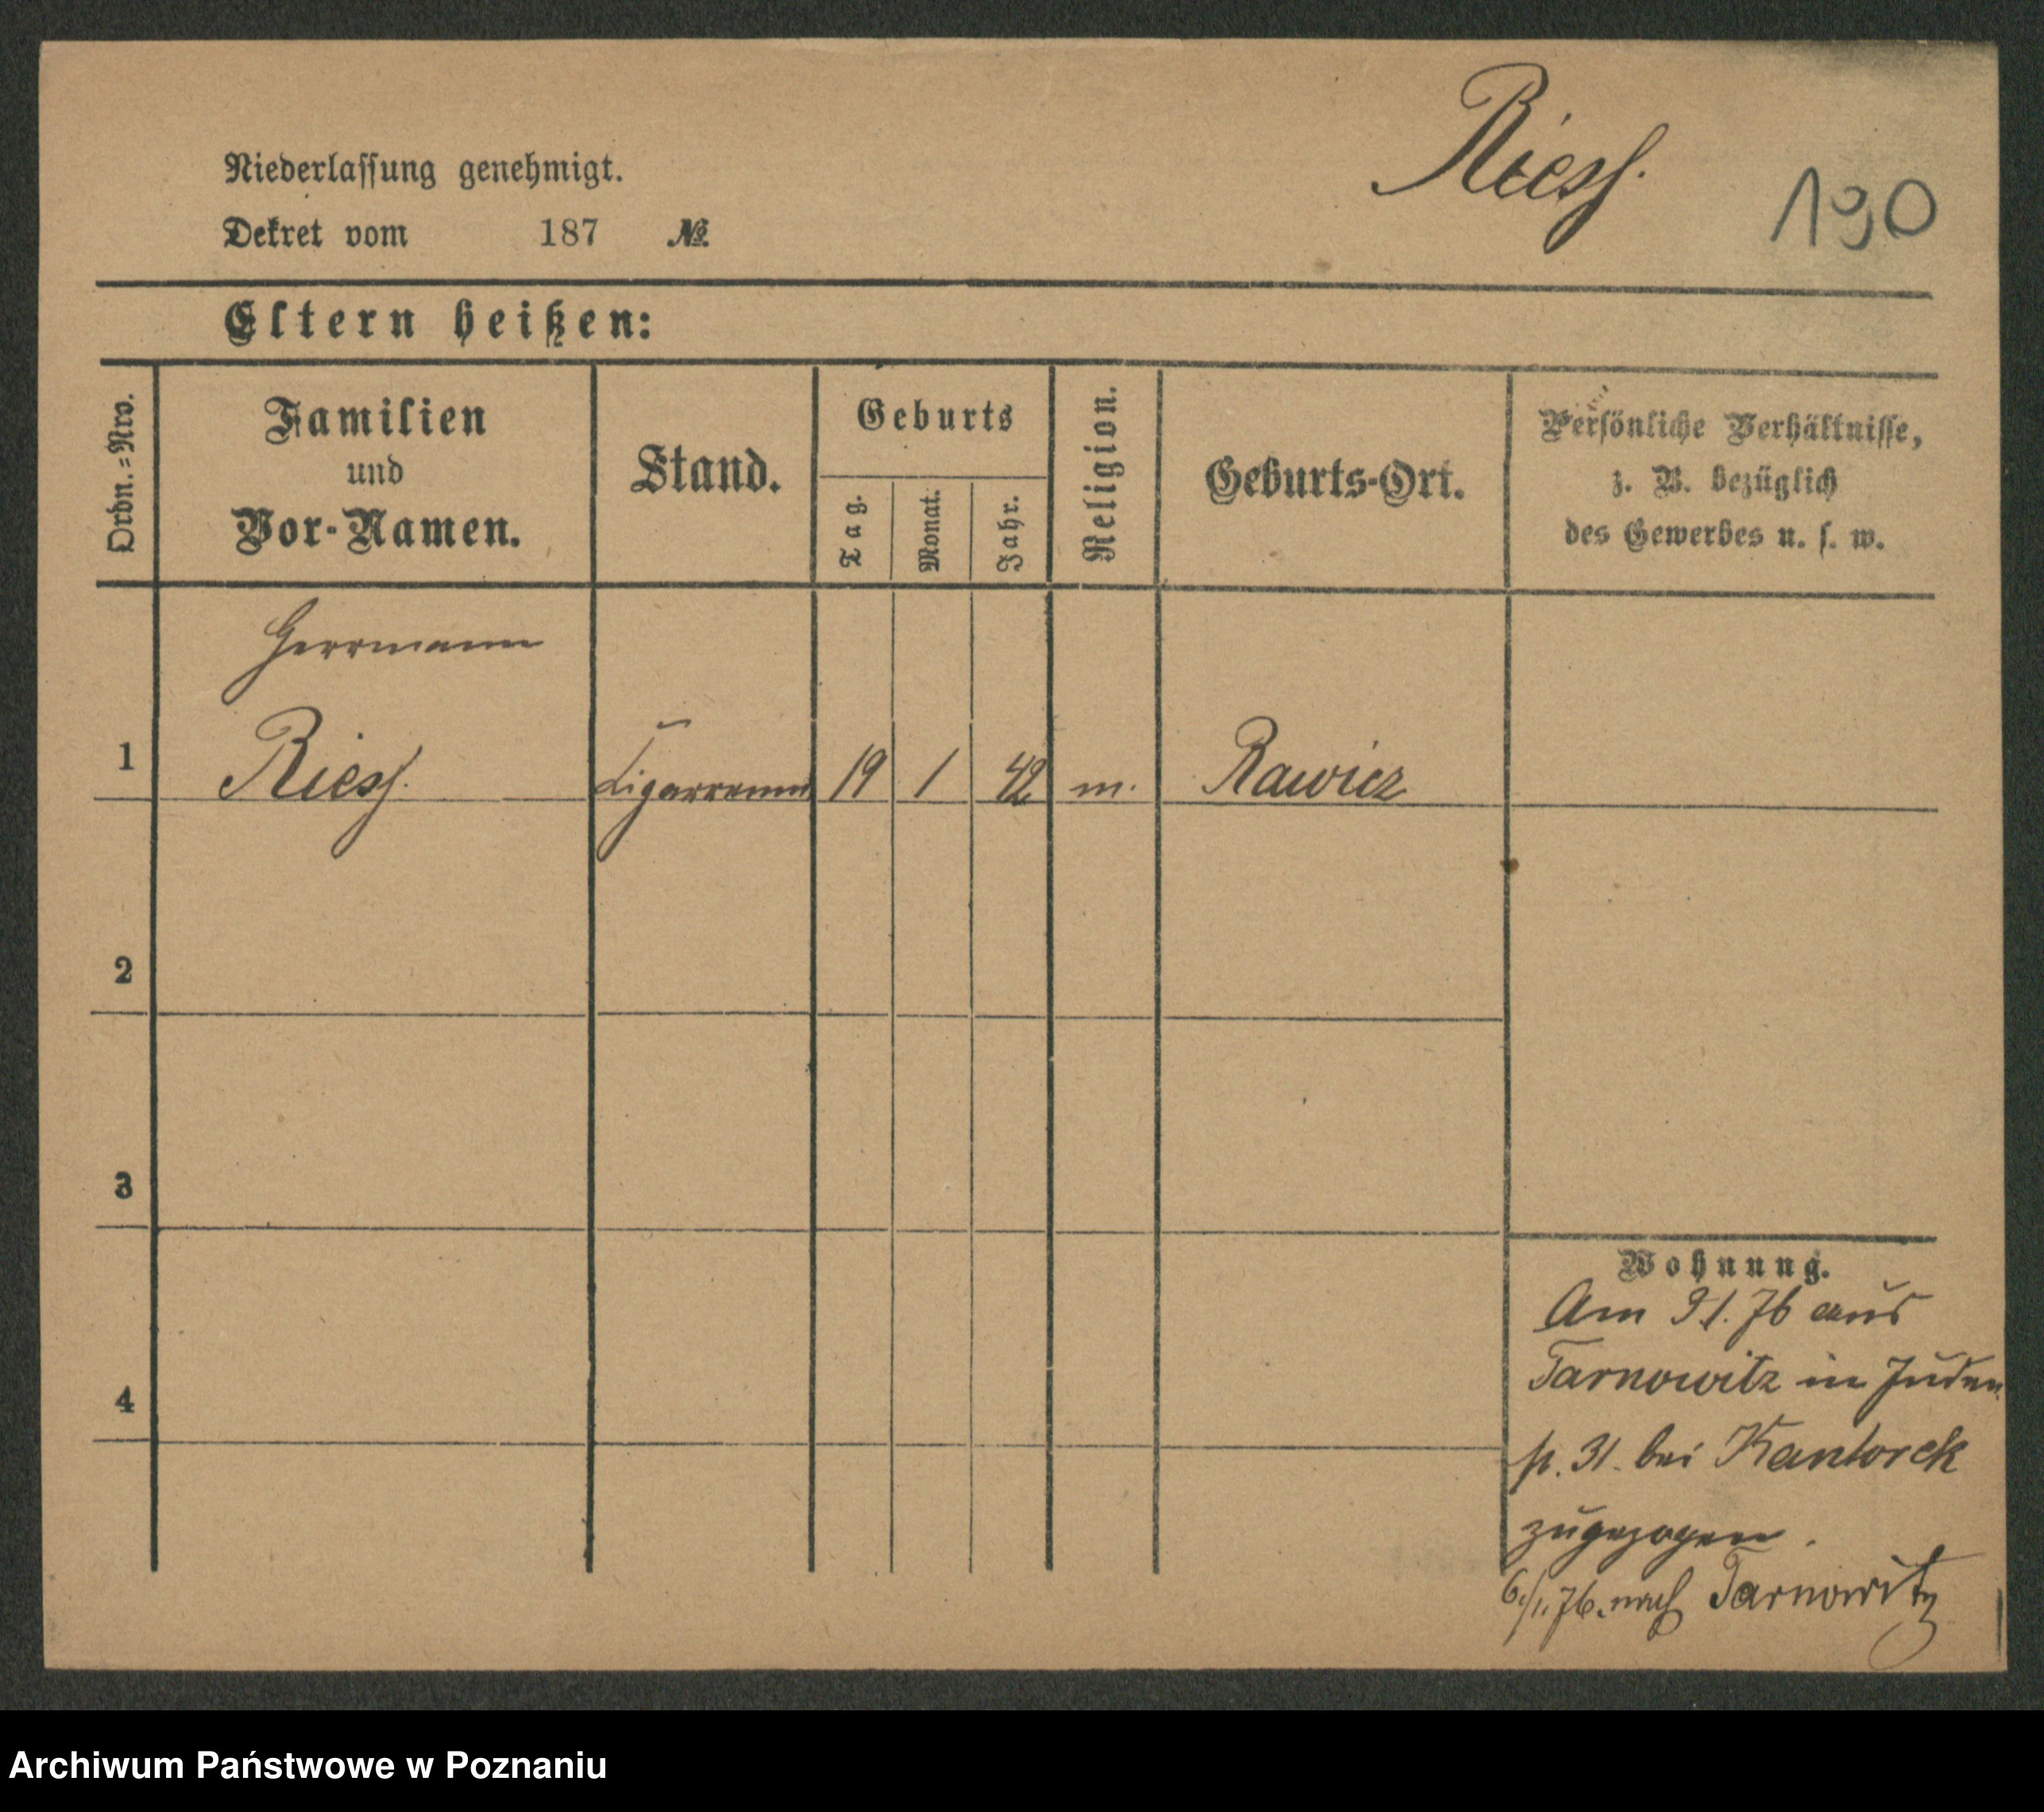 Riess.
190
Niederlassung genehmigt.
Dekret vom 187 №
Eltern heißen:
Ordn.=Nro.
Familien
und
Vor-Namen.
Stand.
Geburts
Tag.
Monat.
Jahr.
Religion.
Geburts-Ort.
Persönliche Verhältnisse,
z. B. bezüglich
des Gewerbes u. s. w.
Herrmann
1 Riess. 19 1 42 m. Rawicz
2
3
4
Wohnung.
Am 3/1. 76 aus
Tarnowitz in Juden
p. 31. bei Kantorek
zugezogen.
6/1. 76. nach Tarnowitz
Archiwum Państwowe w Poznaniu